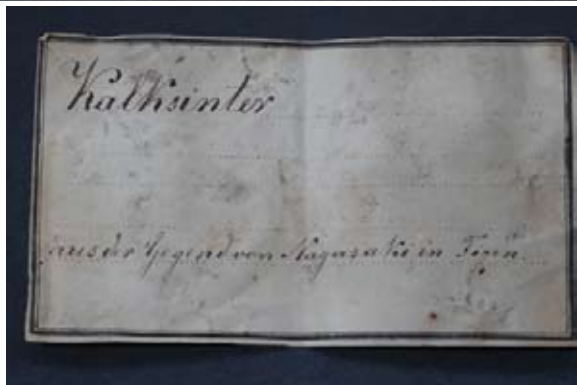 Kalksinter
aus der Gegend von Nagasaki in